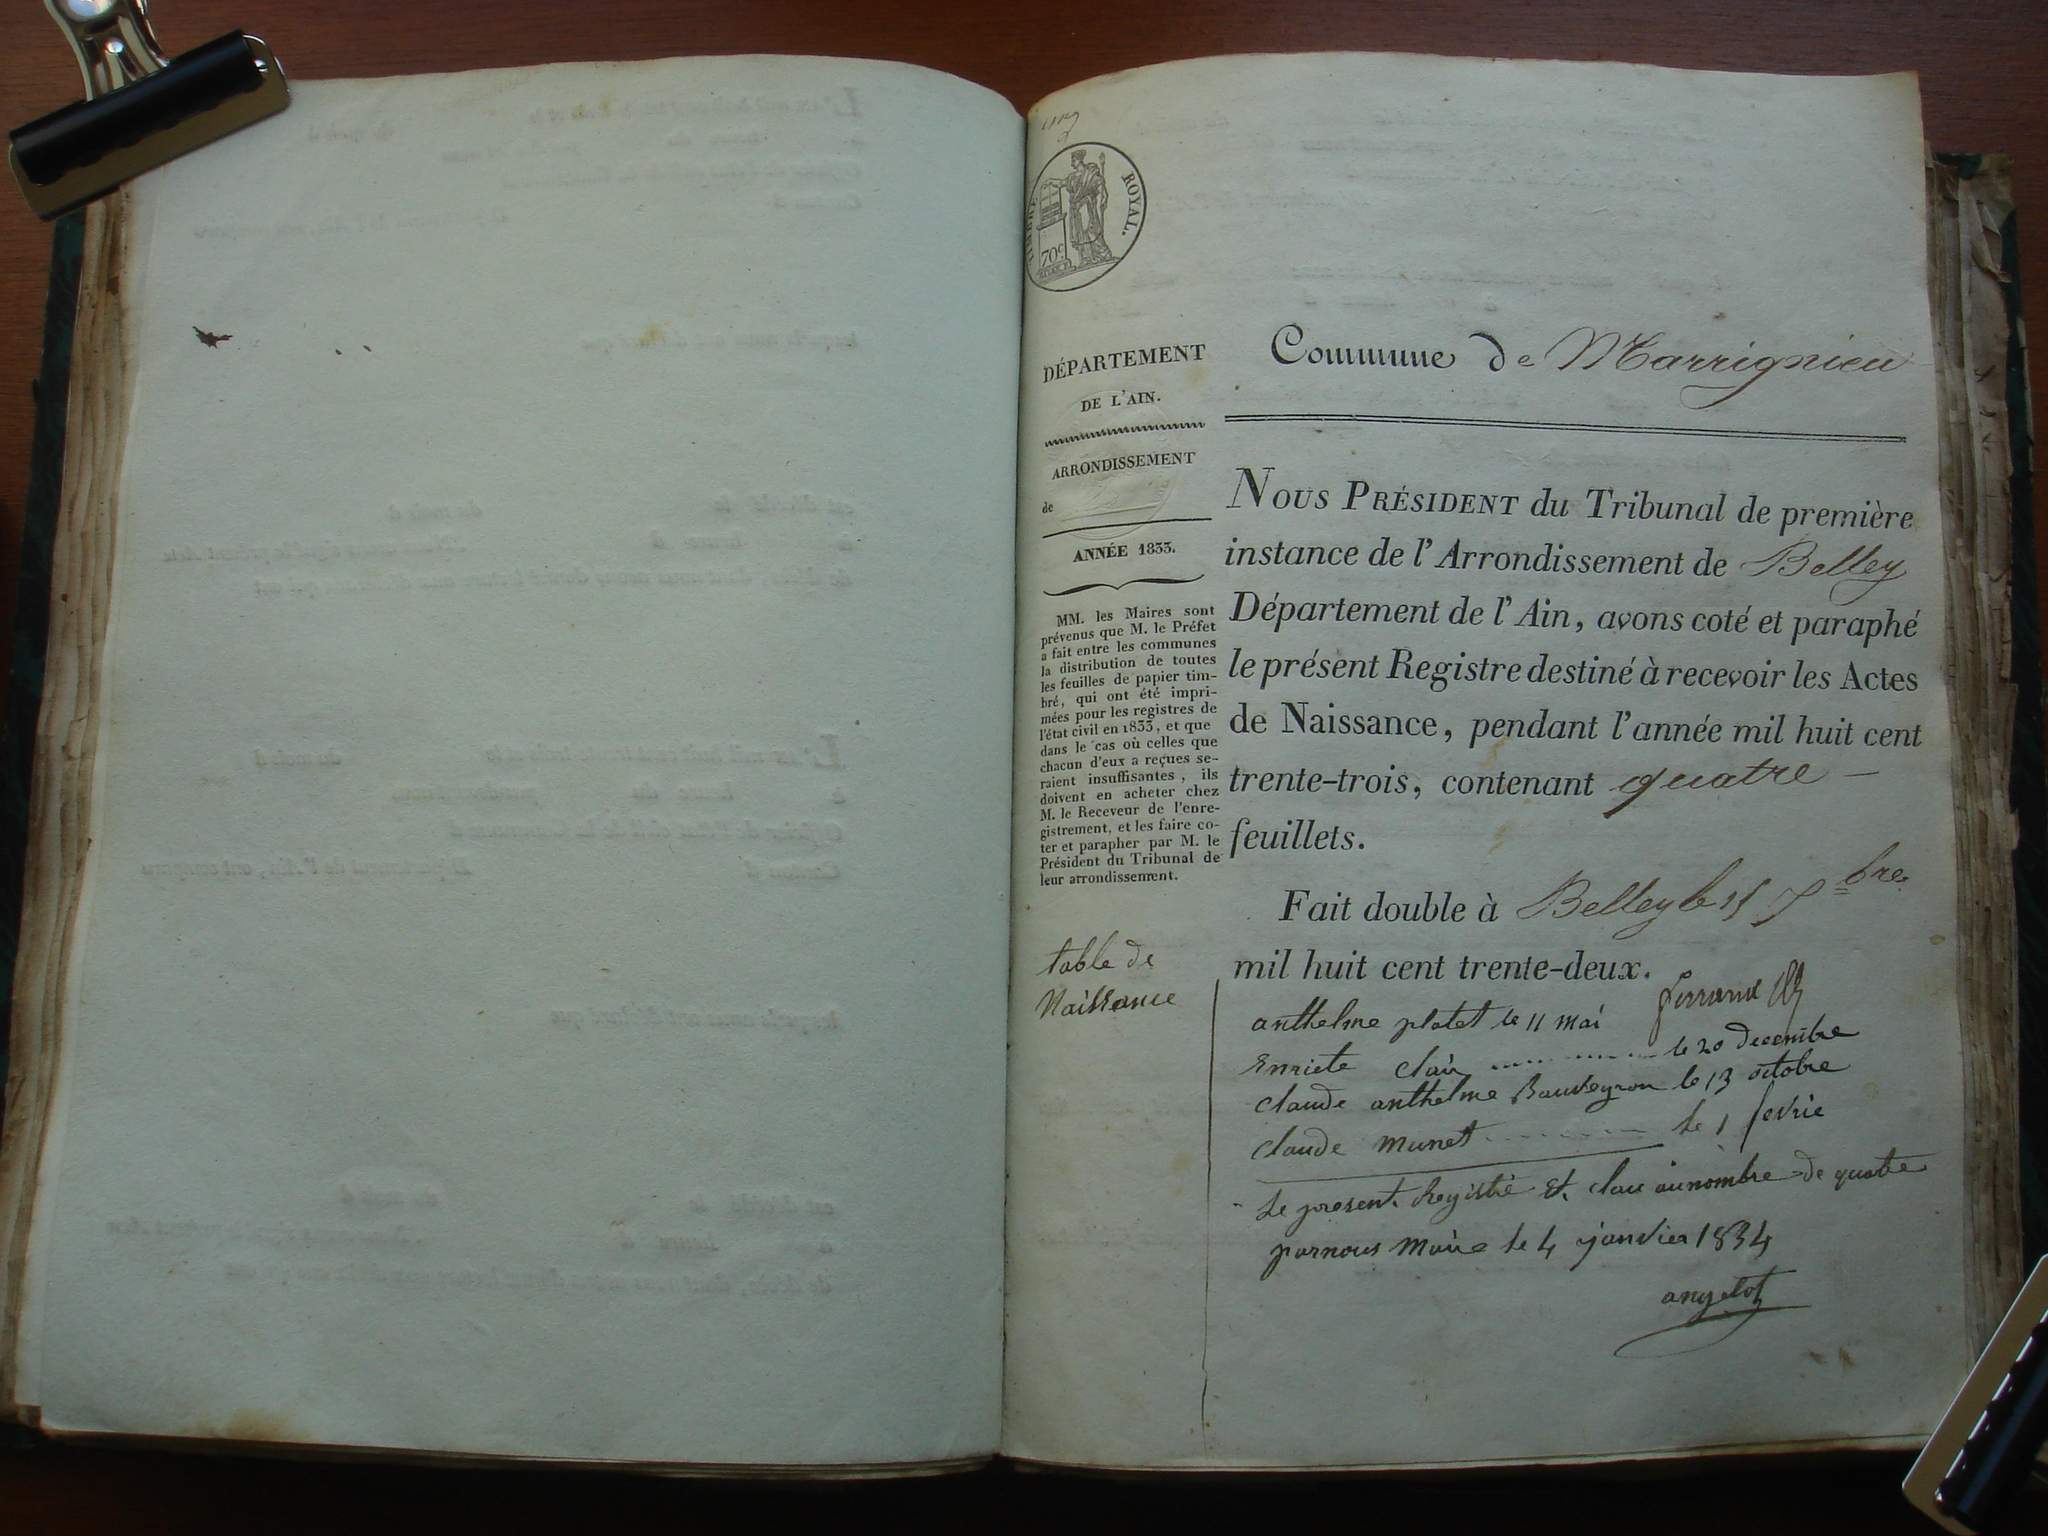 TIMBRE ROYAL.
70c
DÉPARTEMENT
DE L'AIN.
ARRONDISSEMENT
de
ANNÉE 1833.
MM. les Maires sont
prévenus que M. le Préfet
a fait entre les communes
la distribution de toutes
les feuilles de papier tim-
bré, qui ont été impri-
mées pour les registres de
l'état civil en 1833, et que
dans le cas où celles que
chacun d'eux a reçues se-
raient insuffisantes, ils
doivent en acheter chez
M. le Receveur de l'enre-
gistrement, et les faire co-
ter et parapher par M. le
Président du Tribunal de
leur arrondissement.
table de
Naissance
Commune de Marrignieu
NOUS PRÉSIDENT du Tribunal de première
instance de l'Arrondissement de Belley
Département de l'Ain, avons coté et paraphé
le présent Registre destiné à recevoir les Actes
de Naissance, pendant l'année mil huit cent
trente-trois, contenant quatre
feuillets.
Fait double à Belley le 15 7bre
mil huit cent trente-deux.
anthelme platet le 11 mai
Enriete Clair le 20 decembre
Claude anthelme Bauveyron le 13 octobre
Claude munet le 1 fevrie
Le present Registre Et clau au nombre de quatre
par nous Maire le 4 janvier 1834
angelot